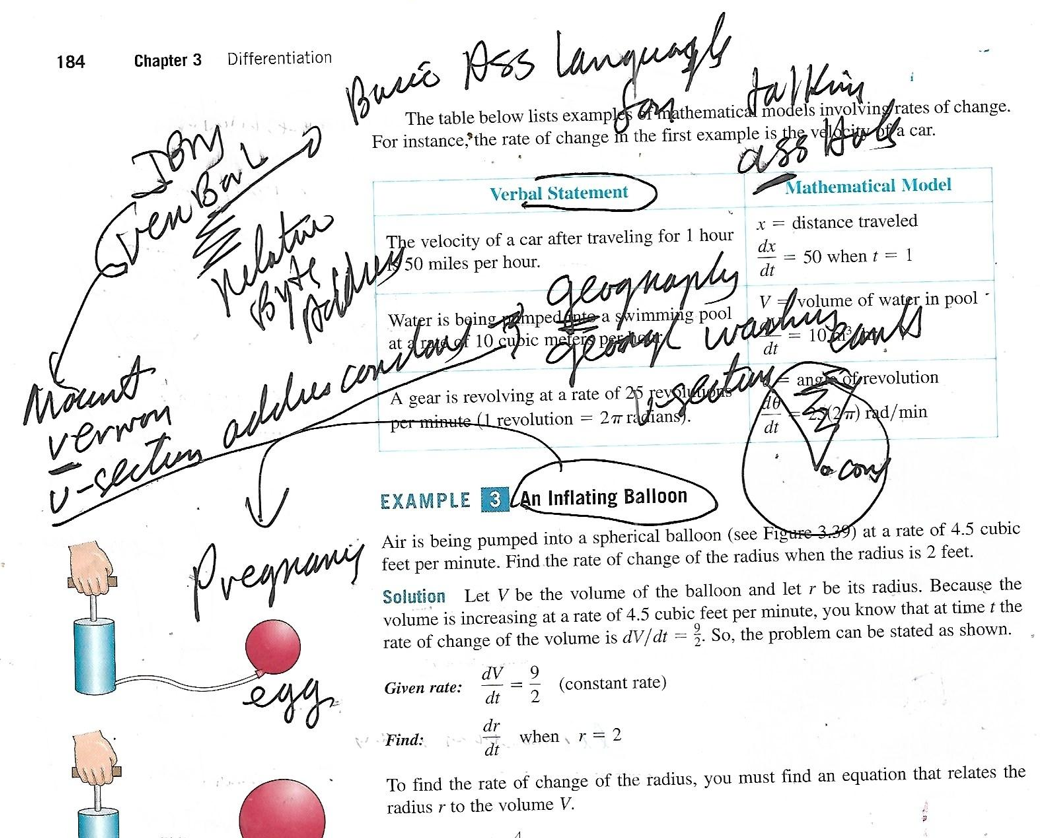 184 Chapter 3 Differentiation
Basic Ass Language
for talkin
ass Hols
The table below lists examples of mathematical models involving rates of change.
For instance, the rate of change in the first example is the velocity of a car.
IBM
VerBaL
Relative
Byte
Address
Verbal Statement Mathematical Model
The velocity of a car after traveling for 1 hour
is 50 miles per hour.
x = distance traveled
dx/dt = 50 when t = 1
geography
Water is being pumped into a swimming pool
at a rate of 10 cubic meters per hour.
V = volume of water in pool
dV/dt = 10 m³/hr
George
V-section
A gear is revolving at a rate of 25 revolutions
per minute (1 revolution = 2π radians).
θ = angle of revolution
dθ/dt = 25(2π) rad/min
Mount
vernon
v-section address
EXAMPLE 3 An Inflating Balloon
Pregnancy
Air is being pumped into a spherical balloon (see Figure 3.39) at a rate of 4.5 cubic
feet per minute. Find the rate of change of the radius when the radius is 2 feet.
Solution Let V be the volume of the balloon and let r be its radius. Because the
volume is increasing at a rate of 4.5 cubic feet per minute, you know that at time t the
rate of change of the volume is dV/dt = 9/2. So, the problem can be stated as shown.
egg
Given rate: dV/dt = 9/2 (constant rate)
Find: dr/dt when r = 2
To find the rate of change of the radius, you must find an equation that relates the
radius r to the volume V.